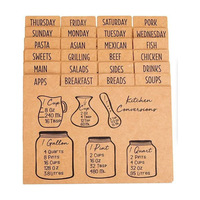 THURSDAY FRIDAY SATURDAY PORK
SUNDAY MONDAY TUESDAY WEDNESDAY
PASTA ASIAN MEXICAN FISH
SWEETS GRILLING BEEF CHICKEN
MAIN SALADS SIDES DRINKS
APPS BREAKFAST BREADS SOUPS
Kitchen
Conversions
1 Cup
8 OZ
240 ML
16 TBSP
1 Gallon
4 Quarts
8 Pints
16 Cups
128 OZ
3.8 Litres
1 Pint
2 Cups
16 OZ
32 TBSP
480 ML
1 Quart
2 Pints
4 Cups
32 OZ
.95 Litres